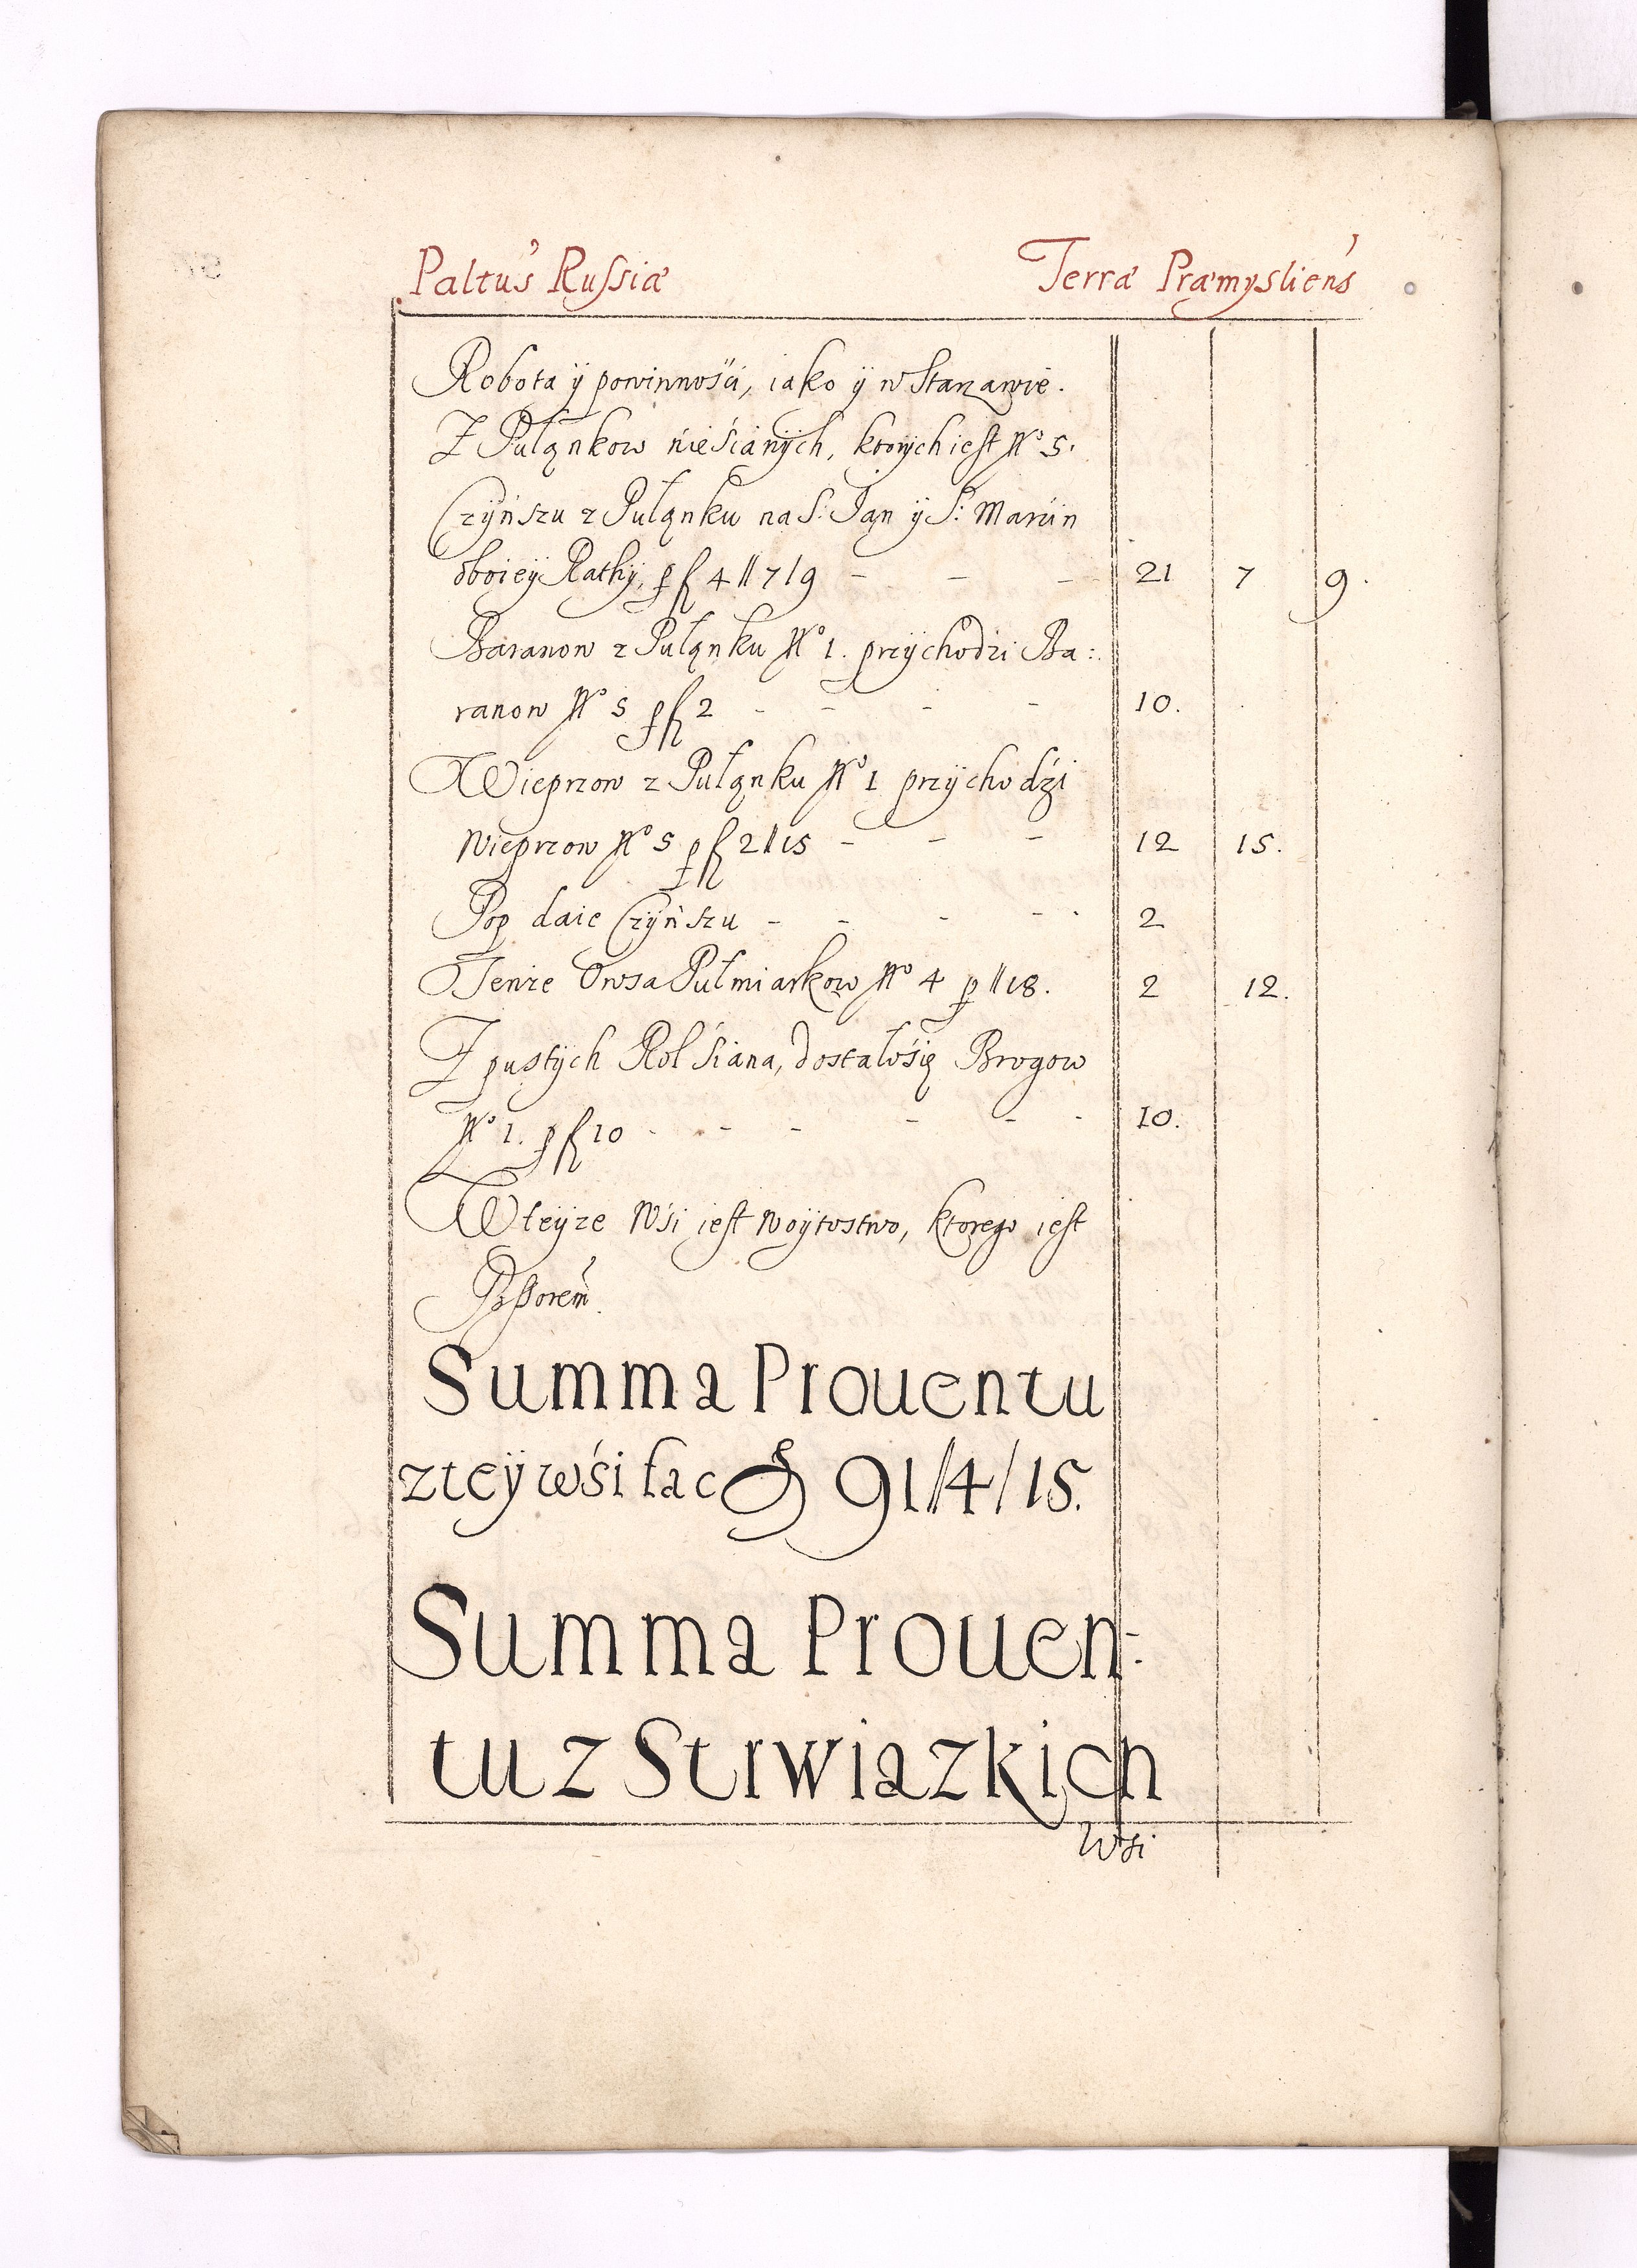 Paltus Russiæ Terræ Præmysliens
Robota ÿ powinnośći, iako ÿ w Stanzawie.
Z Pułąnkow nieśćianÿch, ktorÿch iest No 5.
Czÿńszu z Pułąnku na S: Jan ÿ S: Marćin
oboieÿ Rathÿ, p fl 4 || 7 / 9 - - - 21 7 9.
Baranow z Pułąnku No 1. przÿchodzi Ba:
ranow No 5 p fl 2 - - - - 10.
Wieprzow z Pułąnku No 1 przÿchodźi
Wieprzow No 5 p fl 2 || 15 - - - 12 15.
Pop daie Czÿńszu - - - - 2
Tenże Owsa Pułmiarkow No 4 p || 18. 2 12.
Z pustÿch Rol Śiana, dostałośię Brogow
No 1. p fl 10 - - - - - - 10.
W teÿze Wśi iest Woÿtostwo, ktorego iest
Summa Prouentu
z teÿ wśi fac 91 // 4 / 15.
Summa Prouen:
tu z Strwiazkich
Wśi